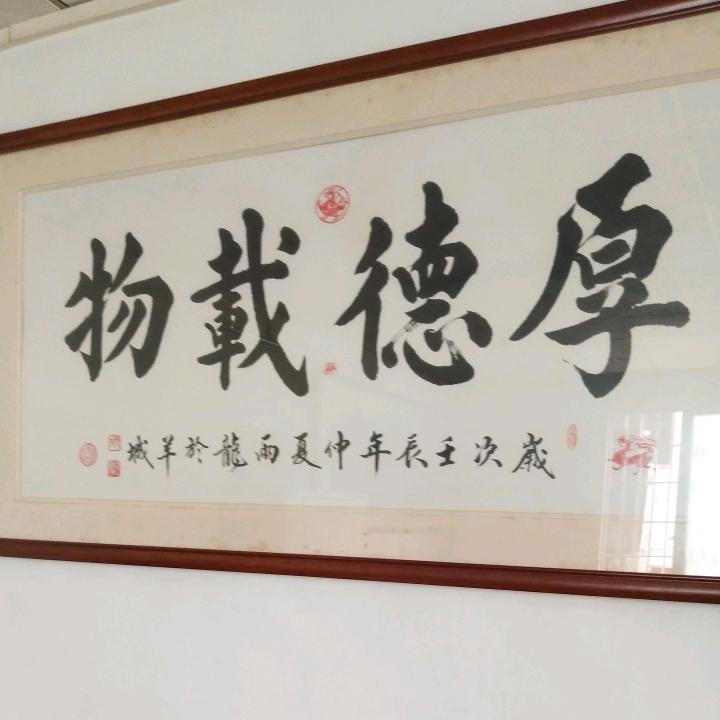 厚德載物
歲次壬辰年仲夏雨龍於羊城